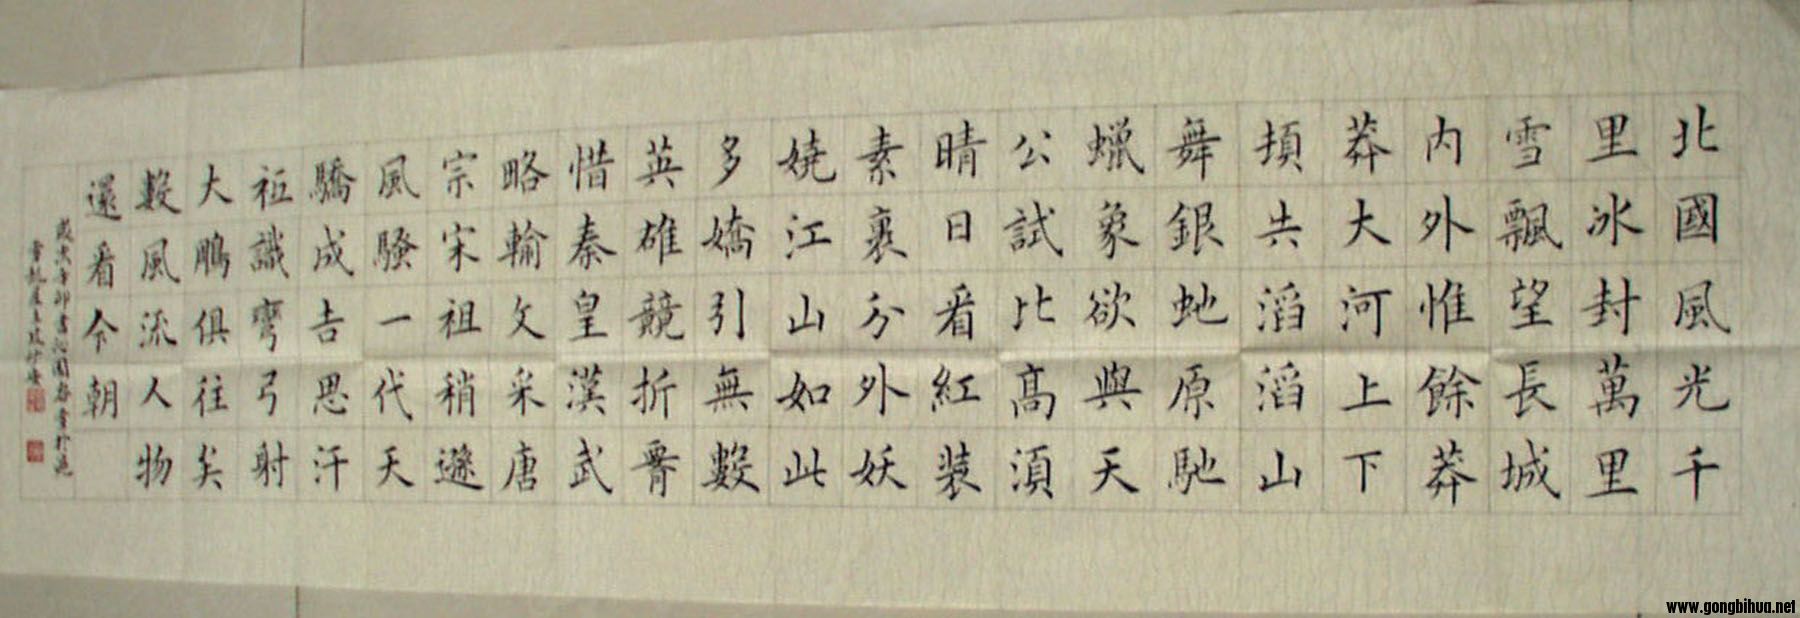 北國風光千
里冰封萬里
雪飄望長城
内外惟餘莽
莽大河上下
頓失滔滔山
舞銀虵原馳
蠟象欲與天
公試比高須
晴日看紅装
素裹分外妖
嬈江山如此
多嬌引無數
英雄競折腰
惜秦皇漢武
略輸文采唐
宗宋祖稍遜
風騷一代天
驕成吉思汗
祗識彎弓射
大鵰俱往矣
數風流人物
還看今朝
辛卯書沁園春雪於
www.gongbihua.net